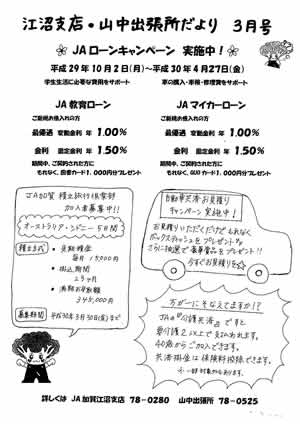 江沼支店・山中出張所だより 3月号
☆ JAローンキャンペーン 実施中！ ☆
平成29年10月2日(月)～平成30年4月27日(金)
学生生活に必要な費用をサポート
車の購入・車検・修理費をサポート
JA教育ローン
ご新規お借入れの方
最優遇 変動金利 年 1.00%
金利 固定金利 年 1.50%
期間中、ご契約された方に
もれなく、図書カード1,000円分プレゼント
JAマイカーローン
ご新規お借入れの方
最優遇 変動金利 年 1.00%
金利 固定金利 年 1.50%
期間中、ご契約された方に
もれなく、QUOカード1,000円分プレゼント
JA加賀 積立旅行倶楽部
加入者募集中！！
オーストラリア・シドニー 5日間
積立方式
・定期積金
毎月 15,000円
・掛込期間
23ヶ月
・満期お受取額
345,000円
募集期間 平成30年3月30日(金)まで
自動車共済お見積り
キャンペーン実施中！
お見積りいただくだけでもれなく
ボックスティッシュをプレゼント
さらに抽選で豪華賞品をプレゼント！！
今すぐお見積りを☆
万が一にそなえてますか！？
JAの『介護共済』ですと
要介護2以上で支払われます。
40歳からご加入できます。
共済掛金は保険料控除できます。
詳しくは JA加賀江沼支店 78-0280 山中出張所 78-0525